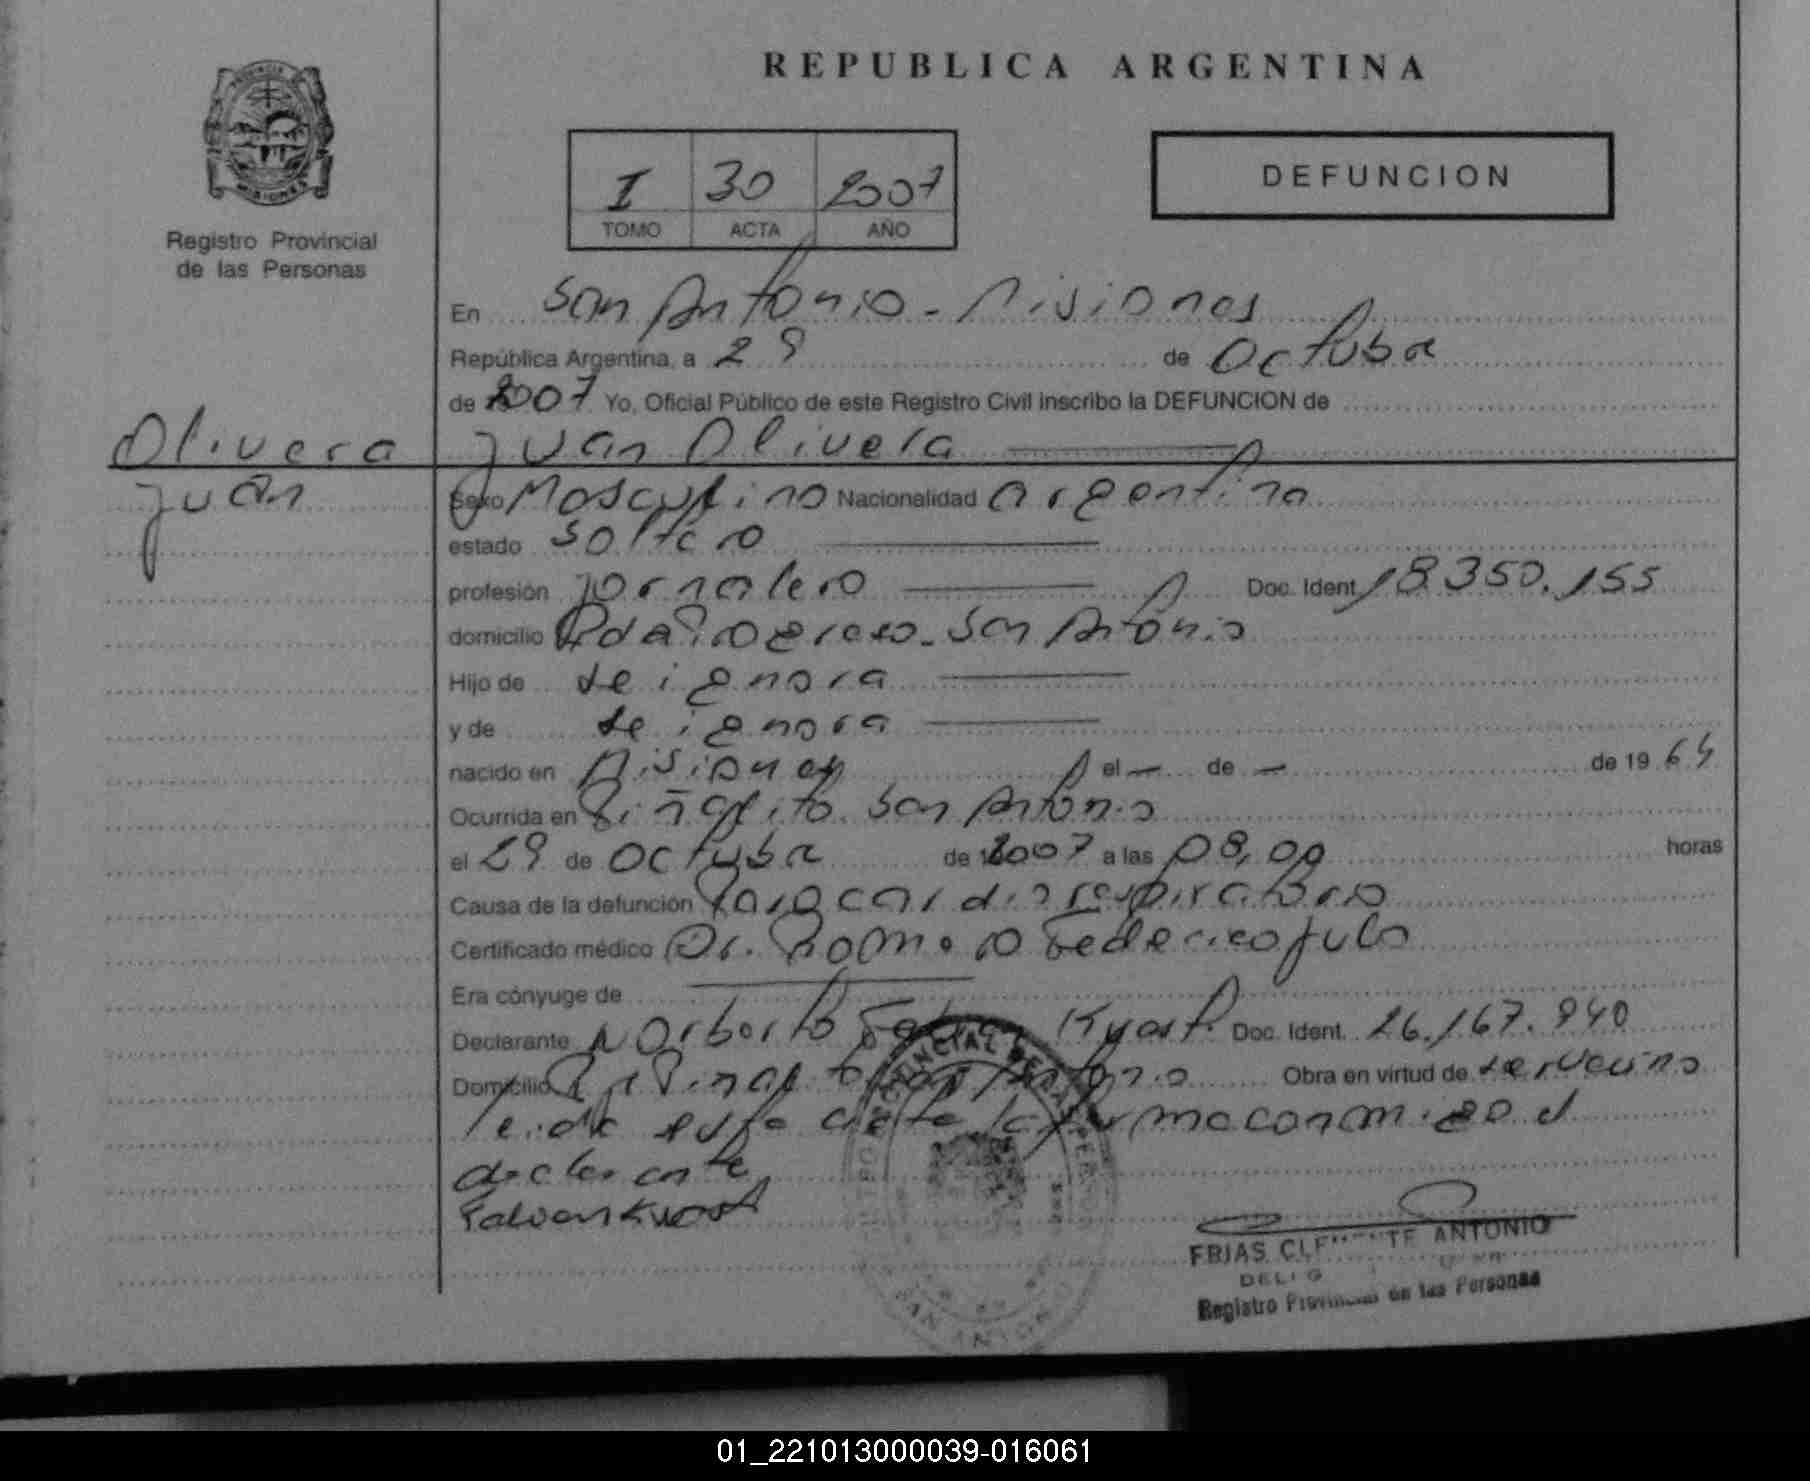 REPUBLICA ARGENTINA
PROVINCIA DE
MISIONES
Registro Provincial
de las Personas
I 30 2007
TOMO ACTA AÑO
DEFUNCION
En San Antonio - Misiones
República Argentina, a 29 de Octubre
de 2007 Yo, Oficial Público de este Registro Civil inscribo la DEFUNCION de
Olivera Juan Olivera
Juan
Sexo Masculino Nacionalidad Argentino
estado Soltero
profesión jornalero Doc. Ident 18.350.155
domicilio San Antonio
Hijo de se ignora
y de se ignora
nacido en Misiones el - de - de 1964
Ocurrida en Piñalito San Antonio
el 29 de Octubre de 2007 a las 08,00 horas
Causa de la defunción Paro cardio respiratorio
Certificado médico Dr. Romero Federico Julo
Era cónyuge de
Declarante Norberto Doc. Ident. 26.167.940
Domicilio Obra en virtud de
leida esta acta la firma conmigo el
declarante
FRIAS CLEMENTE ANTONIO
Registro Provincial de las Personas
SAN ANTONIO
01_221013000039-016061